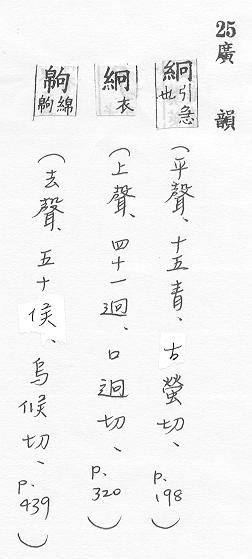 25廣韻
絅引急也(平聲、十五青、古螢切、p.198)
絅衣(上聲、四十一迥、口迥切、p.320)
(去聲、五十候、烏候切、p.439)